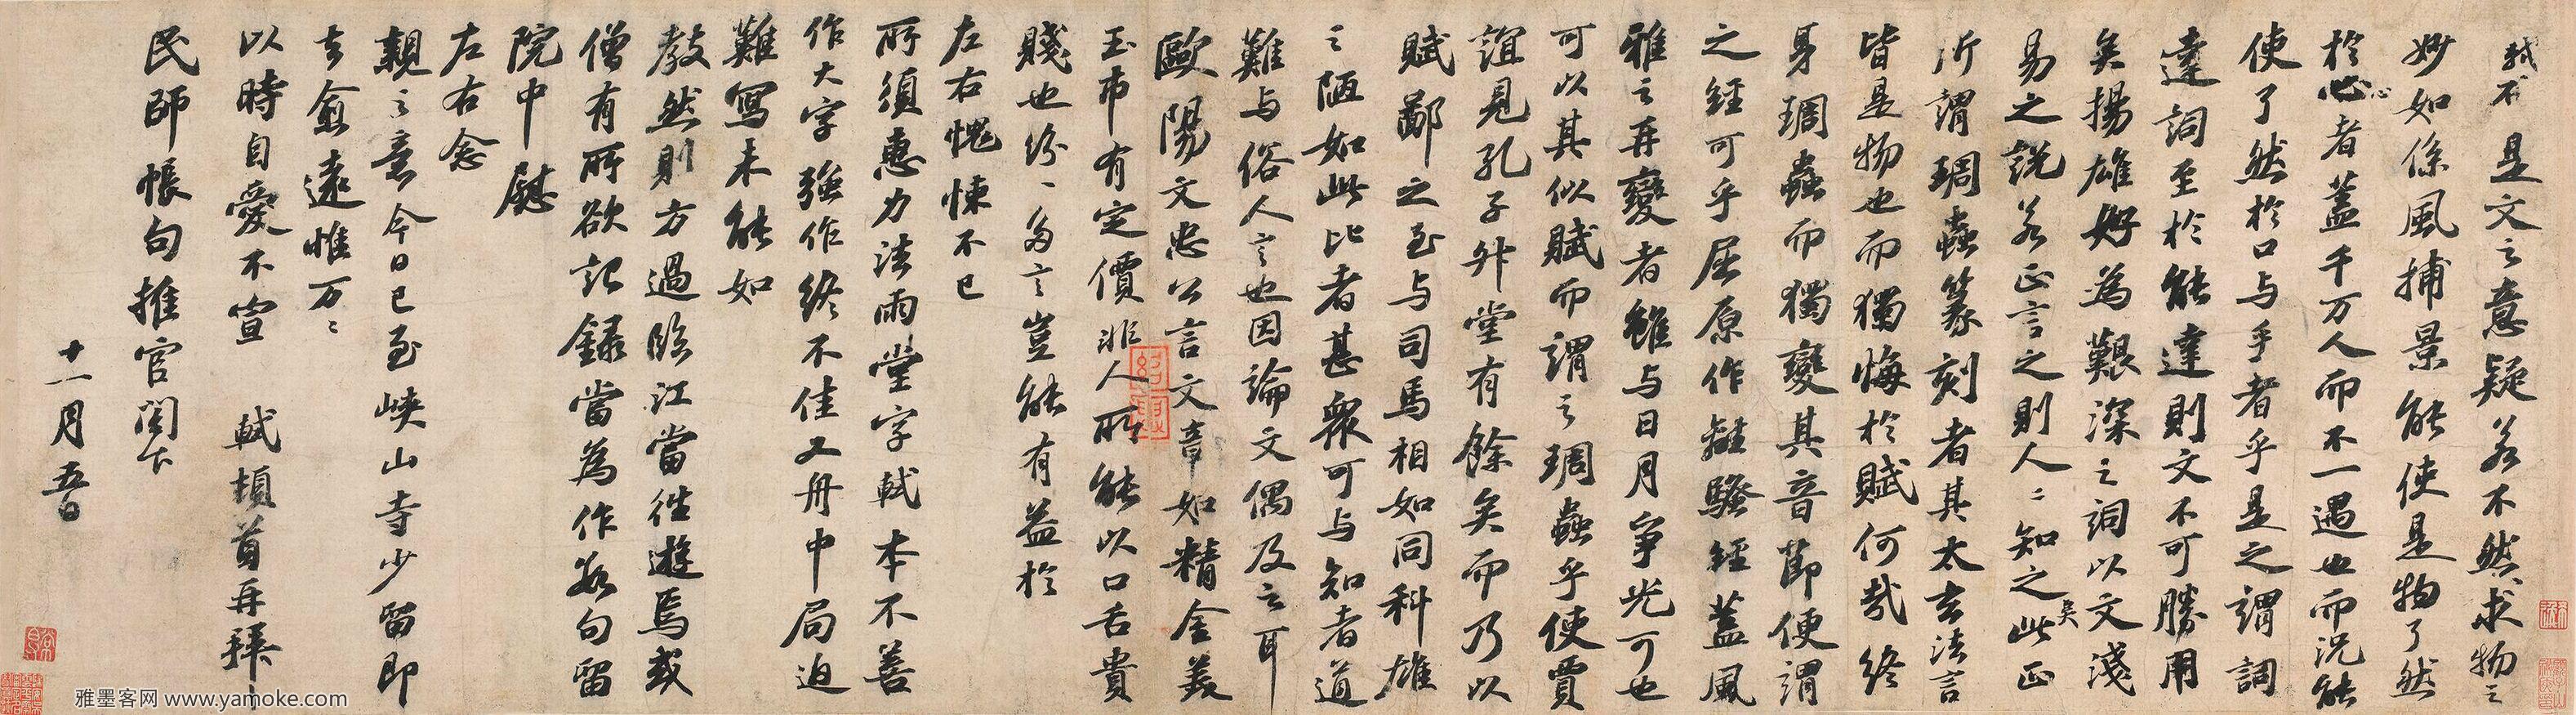 軾不是文之意疑若不然求物之
妙如係風捕景能使是物了然
於心者蓋千万人而不一遇也而況能
使了然於口与手者乎是之謂詞
達詞至於能達則文不可勝用
矣揚雄好為艱深之詞以文淺
易之說若正言之則人〻知之矣此正
所謂琱蟲篆刻者其太玄法言
皆是物也而獨悔於賦何哉終
身琱蟲而獨變其音節便謂
之經可乎屈原作離騷經蓋風
雅之再變者雖与日月爭光可也
可以其似賦而謂之琱蟲乎使賈
誼見孔子升堂有餘矣而乃以
賦鄙之至与司馬相如同科雄
之陋如此比者甚衆可与知者道
難与俗人言也因論文偶及之耳
歐陽文忠公言文章如精金美
玉市有定價非人所能以口舌貴
賤也紛〻多言豈能有益於
左右愧悚不已
所須惠力法雨堂字軾本不善
作大字強作終不佳又舟中局迫
難寫未能如
教然則方過臨江當往遊焉或
僧有所欲記錄當為作數句留
院中慰
左右念
親之意今日已至峽山寺少留即
去愈遠惟万〻
以時自愛不宣 軾頓首再拜
民師帳句推官閣下
十一月五日
雅墨客网 www.yamoke.com